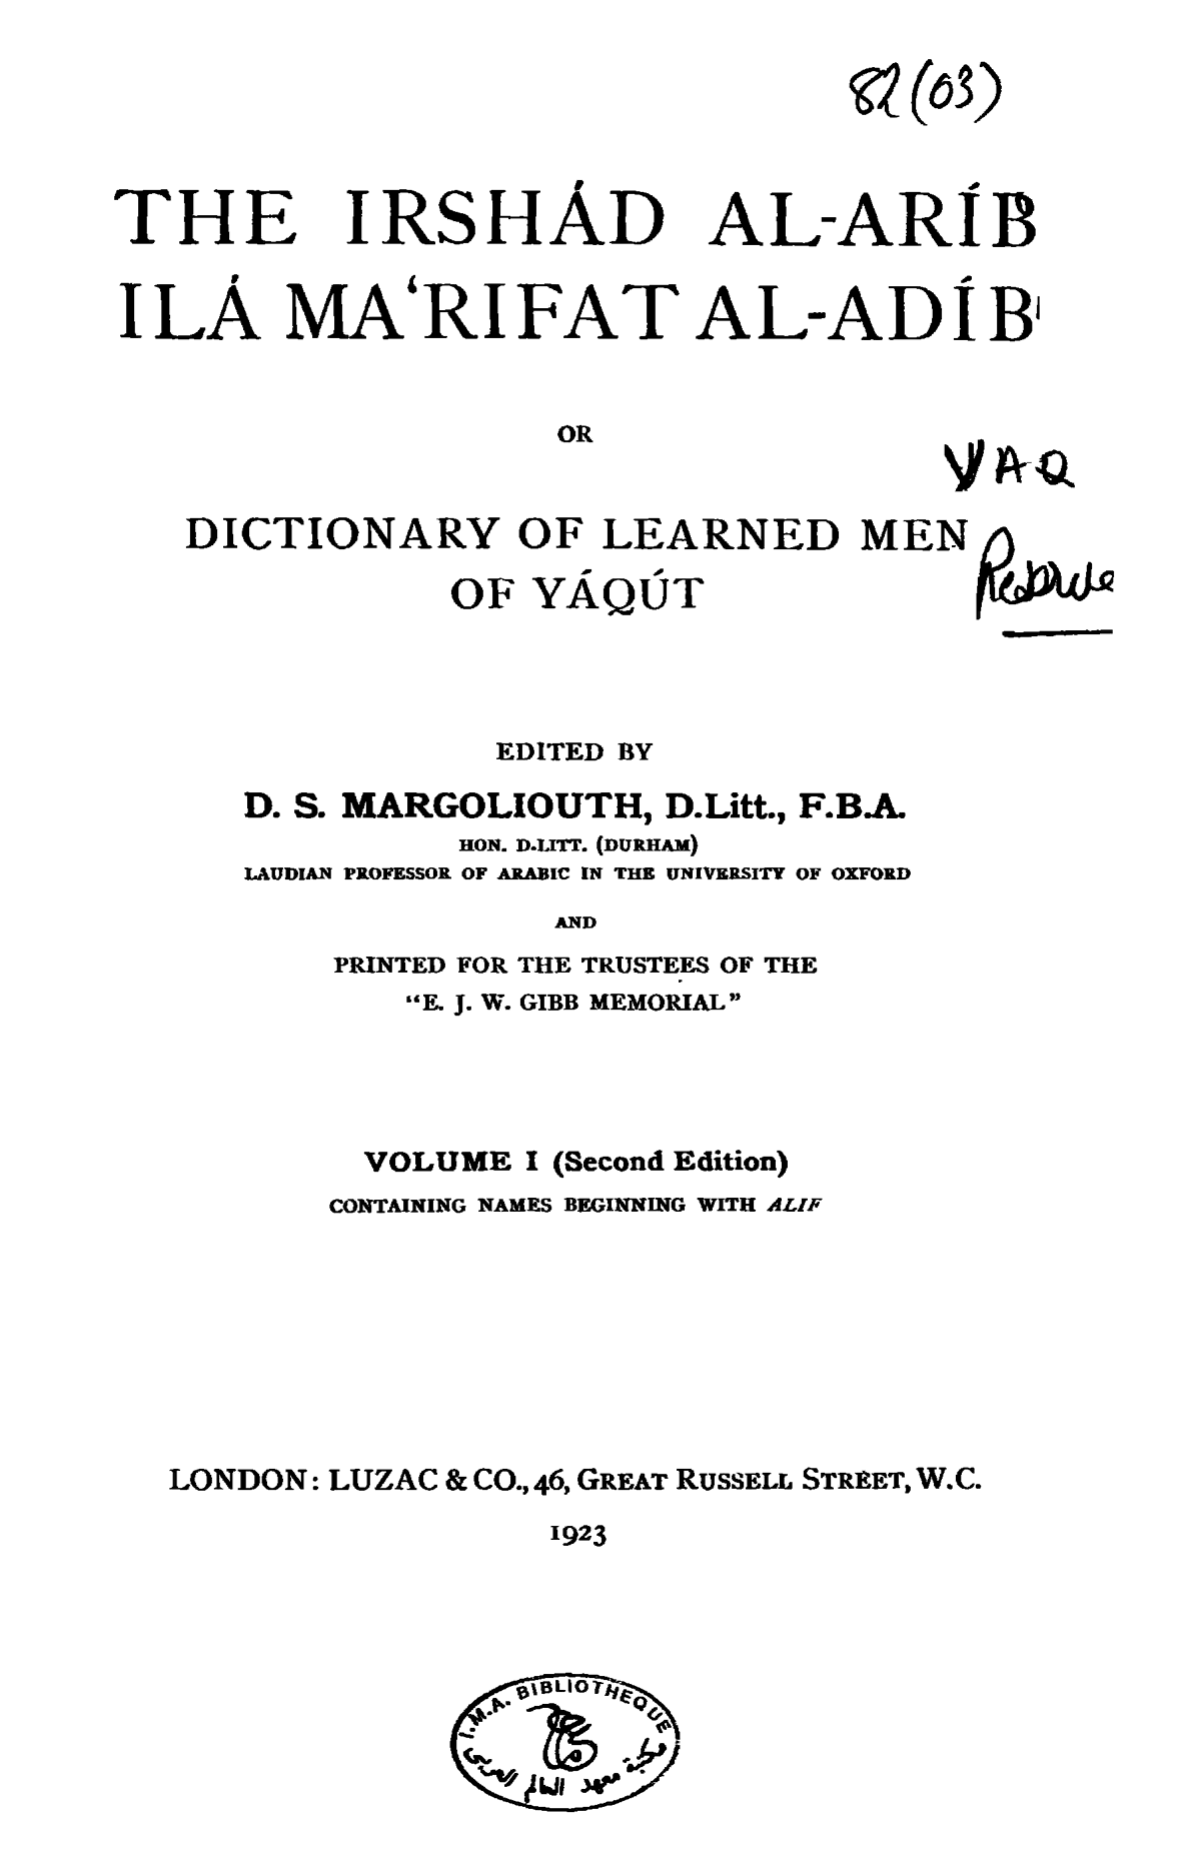 82(03)
THE IRSHÁD AL-ARÍB
ILÁ MA‘RIFAT AL-ADÍB
OR
YAQ
DICTIONARY OF LEARNED MEN
OF YÁQÚT
Reserve
EDITED BY
D. S. MARGOLIOUTH, D.Litt., F.B.A.
HON. D.LITT. (DURHAM)
LAUDIAN PROFESSOR OF ARABIC IN THE UNIVERSITY OF OXFORD
AND
PRINTED FOR THE TRUSTEES OF THE
“E. J. W. GIBB MEMORIAL”
VOLUME I (Second Edition)
CONTAINING NAMES BEGINNING WITH ALIF
LONDON: LUZAC & CO., 46, GREAT RUSSELL STREET, W.C.
1923
I.M.A. BIBLIOTHEQUE
مكتبة معهد العالم العربي